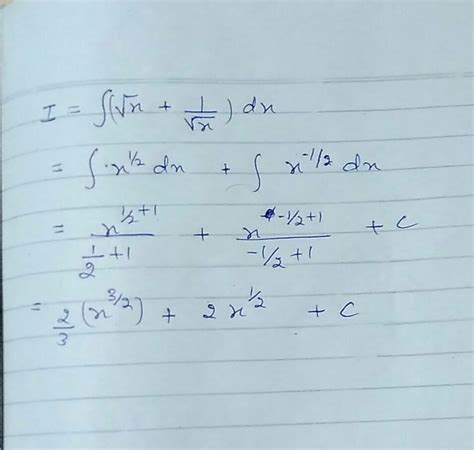 I = ∫(√x + 1/√x) dx
= ∫ x^1/2 dx + ∫ x^-1/2 dx
= x^(1/2+1)/(1/2+1) + x^(-1/2+1)/(-1/2+1) + C
= 2/3 (x^3/2) + 2x^1/2 + C